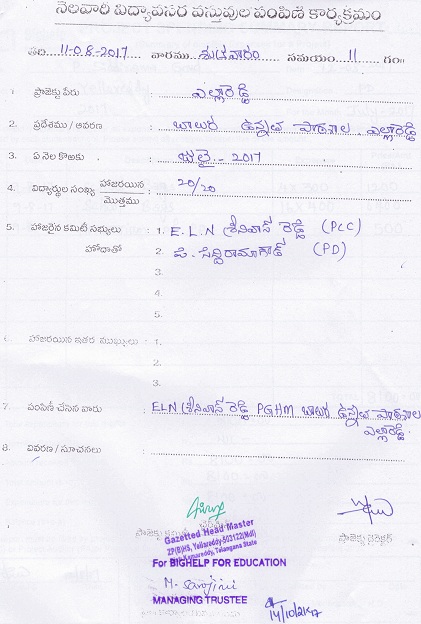 నెలవారి విద్యావసర వస్తువుల పంపిణి కార్యక్రమం
తేది. 11-08-2017 వారము శుక్రవారం సమయం 11 గం
1. ప్రాజెక్టు పేరు : ఎల్లారెడ్డి
2. ప్రదేశము / ఆవరణ : బాలుర ఉన్నత పాఠశాల, ఎల్లారెడ్డి
3. ఏ నెల కొఱకు : జులై - 2017
4. విద్యార్థుల సంఖ్య హాజరయిన / మొత్తము : 20/20
5. హాజరైన కమిటీ సభ్యులు : 1. E.L.N శ్రీనివాస్ రెడ్డి (PLC)
హోదాతో 2. పి. సిద్దిరామాగౌడ్ (PD)
3.
4.
5.
6. హాజరయిన ఇతర ముఖ్యులు : 1.
2.
3.
7. పంపిణీ చేసిన వారు : ELN శ్రీనివాస్ రెడ్డి PGHM బాలుర ఉన్నత పాఠశాల
ఎల్లారెడ్డి.
8. వివరణ / సూచనలు :
ప్రాజెక్టు కమిటీ ప్రాజెక్టు డైరెక్టర్
Gazetted Head Master
ZP(B)HS, Yellareddy-503122(Mdl)
Kamareddy, Telangana State
For BIGHELP FOR EDUCATION
M. Sarojini
MANAGING TRUSTEE
14/10/2k17